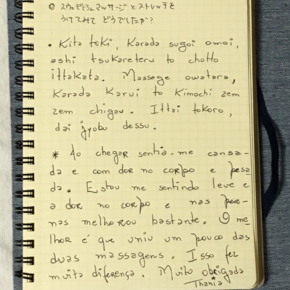 スウェディッシュマッサージとストレッチを
うけてみて どうでしたか?
• Kita toki, Karada sugoi omoi,
ashi tsukareteru to chotto
ittakata. Massage owatara,
Karada Karui to Kimochi zem
zem chigau. Ittai tokoro,
dai jyobu dessu.
* Ao chegar sentia-me cansa-
da e com dor no corpo e pesa
da. Estou me sentindo leve e
a dor no corpo e nas per-
nas melhorou bastante. O me-
lhor é que uniu um pouco das
duas massagens. Isso fez
muita diferença. Muito obrigada
Thania